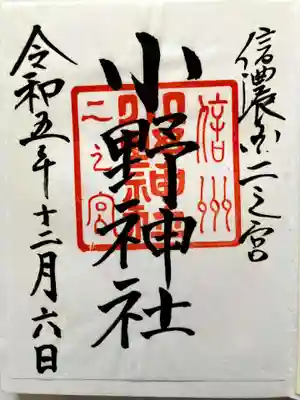 信濃國二之宮
小野神社
信州
二之宮
令和五年十二月六日